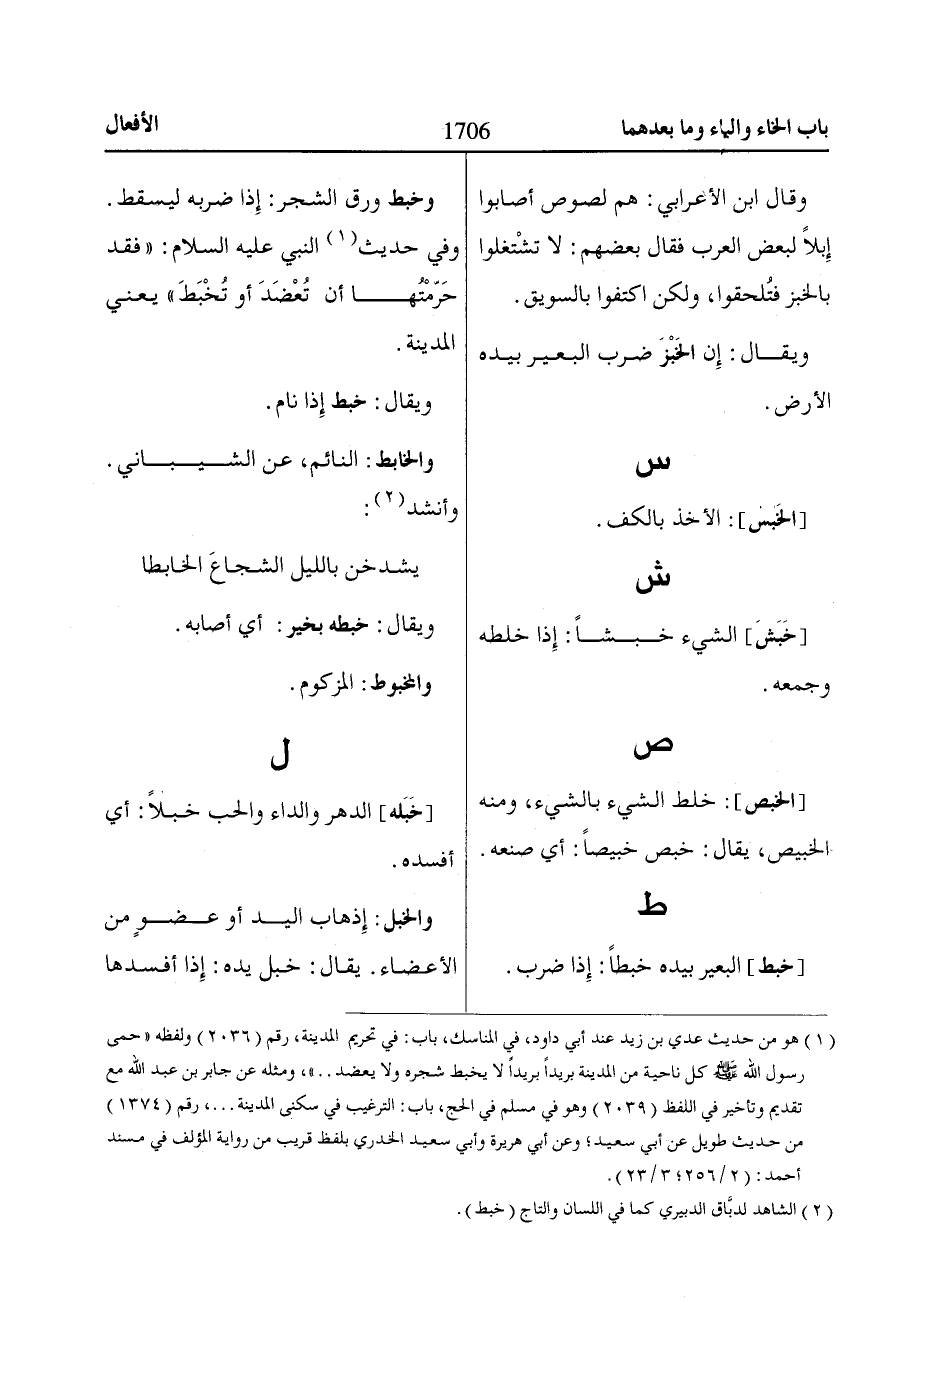 باب الخاء والباء وما بعدهما 1706 الأفعال
وقال ابن الأعرابي: هم لصوص أصابوا
إبلاً لبعض العرب فقال بعضهم: لا تشْتغلوا
بالخبز فتُلحقوا، ولكن اكتفوا بالسويق.
ويقال: إن الخَبْزَ ضرب البعير بيده
الأرض.
س
[الخَبَسْ]: الأخذ بالكف.
ش
[خَبَشَ] الشيء خبشاً: إذا خلطه
وجمعه.
ص
[الخبص]: خلط الشيء بالشيء، ومنه
الخبيص، يقال: خبص خبيصاً: أي صنعه.
ط
[خبط] البعير بيده خبطاً: إذا ضرب.
وخبط ورق الشجر: إذا ضربه ليسقط.
وفي حديث(١) النبي عليه السلام: «فقد
حَرَّمْتُها أن تُعْضَدَ أو تُخْبَطَ» يعني
المدينة.
ويقال: خبط إذا نام.
والخابط: النائم، عن الشيباني.
وأنشد(٢):
يشدخن بالليل الشجاعَ الخابطا
ويقال: خبطه بخير: أي أصابه.
والمخبوط: المزكوم.
ل
[خَبَله] الدهر والداء والحب خبلاً: أي
أفسده.
والخبل: إذهاب اليد أو عضوٍ من
الأعضاء. يقال: خبل يده: إذا أفسدها
(١) هو من حديث عدي بن زيد عند أبي داود، في المناسك، باب: في تحريم المدينة، رقم (٢٠٣٦) ولفظه «حمى
رسول الله ﷺ كل ناحية من المدينة بريداً بريداً لا يخبط شجره ولا يعضد..»، ومثله عن جابر بن عبد الله مع
تقديم وتأخير في اللفظ (٢٠٣٩) وهو في مسلم في الحج، باب: الترغيب في سكنى المدينة...، رقم (١٣٧٤)
من حديث طويل عن أبي سعيد؛ وعن أبي هريرة وأبي سعيد الخدري بلفظ قريب من رواية المؤلف في مسند
أحمد: (٢/٢٥٦؛ ٣/٢٣).
(٢) الشاهد لدبَّاق الدبيري كما في اللسان والتاج (خبط).